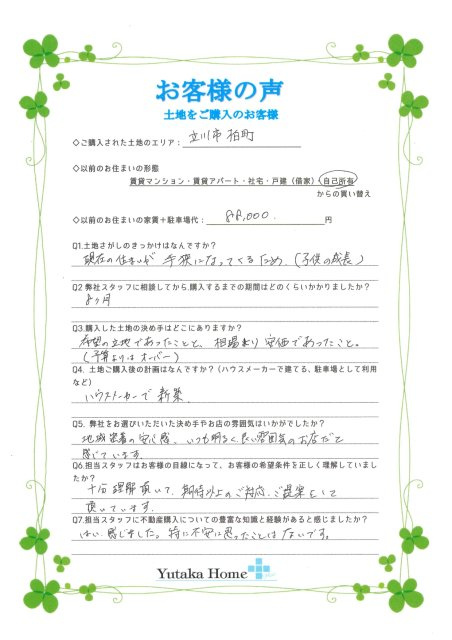 お客様の声
土地をご購入のお客様
◇ご購入された土地のエリア: 立川市 柏町
◇以前のお住まいの形態
賃貸マンション・賃貸アパート・社宅・戸建(借家)・自己所有
からの買い替え
◇以前のお住まいの家賃+駐車場代: 88,000. 円
Q1.土地さがしのきっかけはなんですか?
現在の住まいが 手狭になってくるため.(子供の成長)
Q2 弊社スタッフに相談してから,購入するまでの期間はどのくらいかかりましたか?
8ヶ月
Q3.購入した土地の決め手はどこにありますか?
希望の立地であったことと、相場より安価であったこと。
(予算よりはオーバー)
Q4. 土地ご購入後の計画はなんですか?(ハウスメーカーで建てる、駐車場として利用
など)
ハウスメーカーで新築.
Q5. 弊社をお選びいただいた決め手やお店の雰囲気はいかがでしたか?
地域密着の安心感、いつも明るく、良い雰囲気のお店だと
感じています.
Q6.担当スタッフはお客様の目線になって、お客様の希望条件を正しく理解していまし
たか?
十分理解頂いて、期待以上のご対応、ご提案をして
頂いています.
Q7.担当スタッフに不動産購入についての豊富な知識と経験があると感じましたか?
はい.感じました。特に不安に思ったことはないです。
Yutaka Home